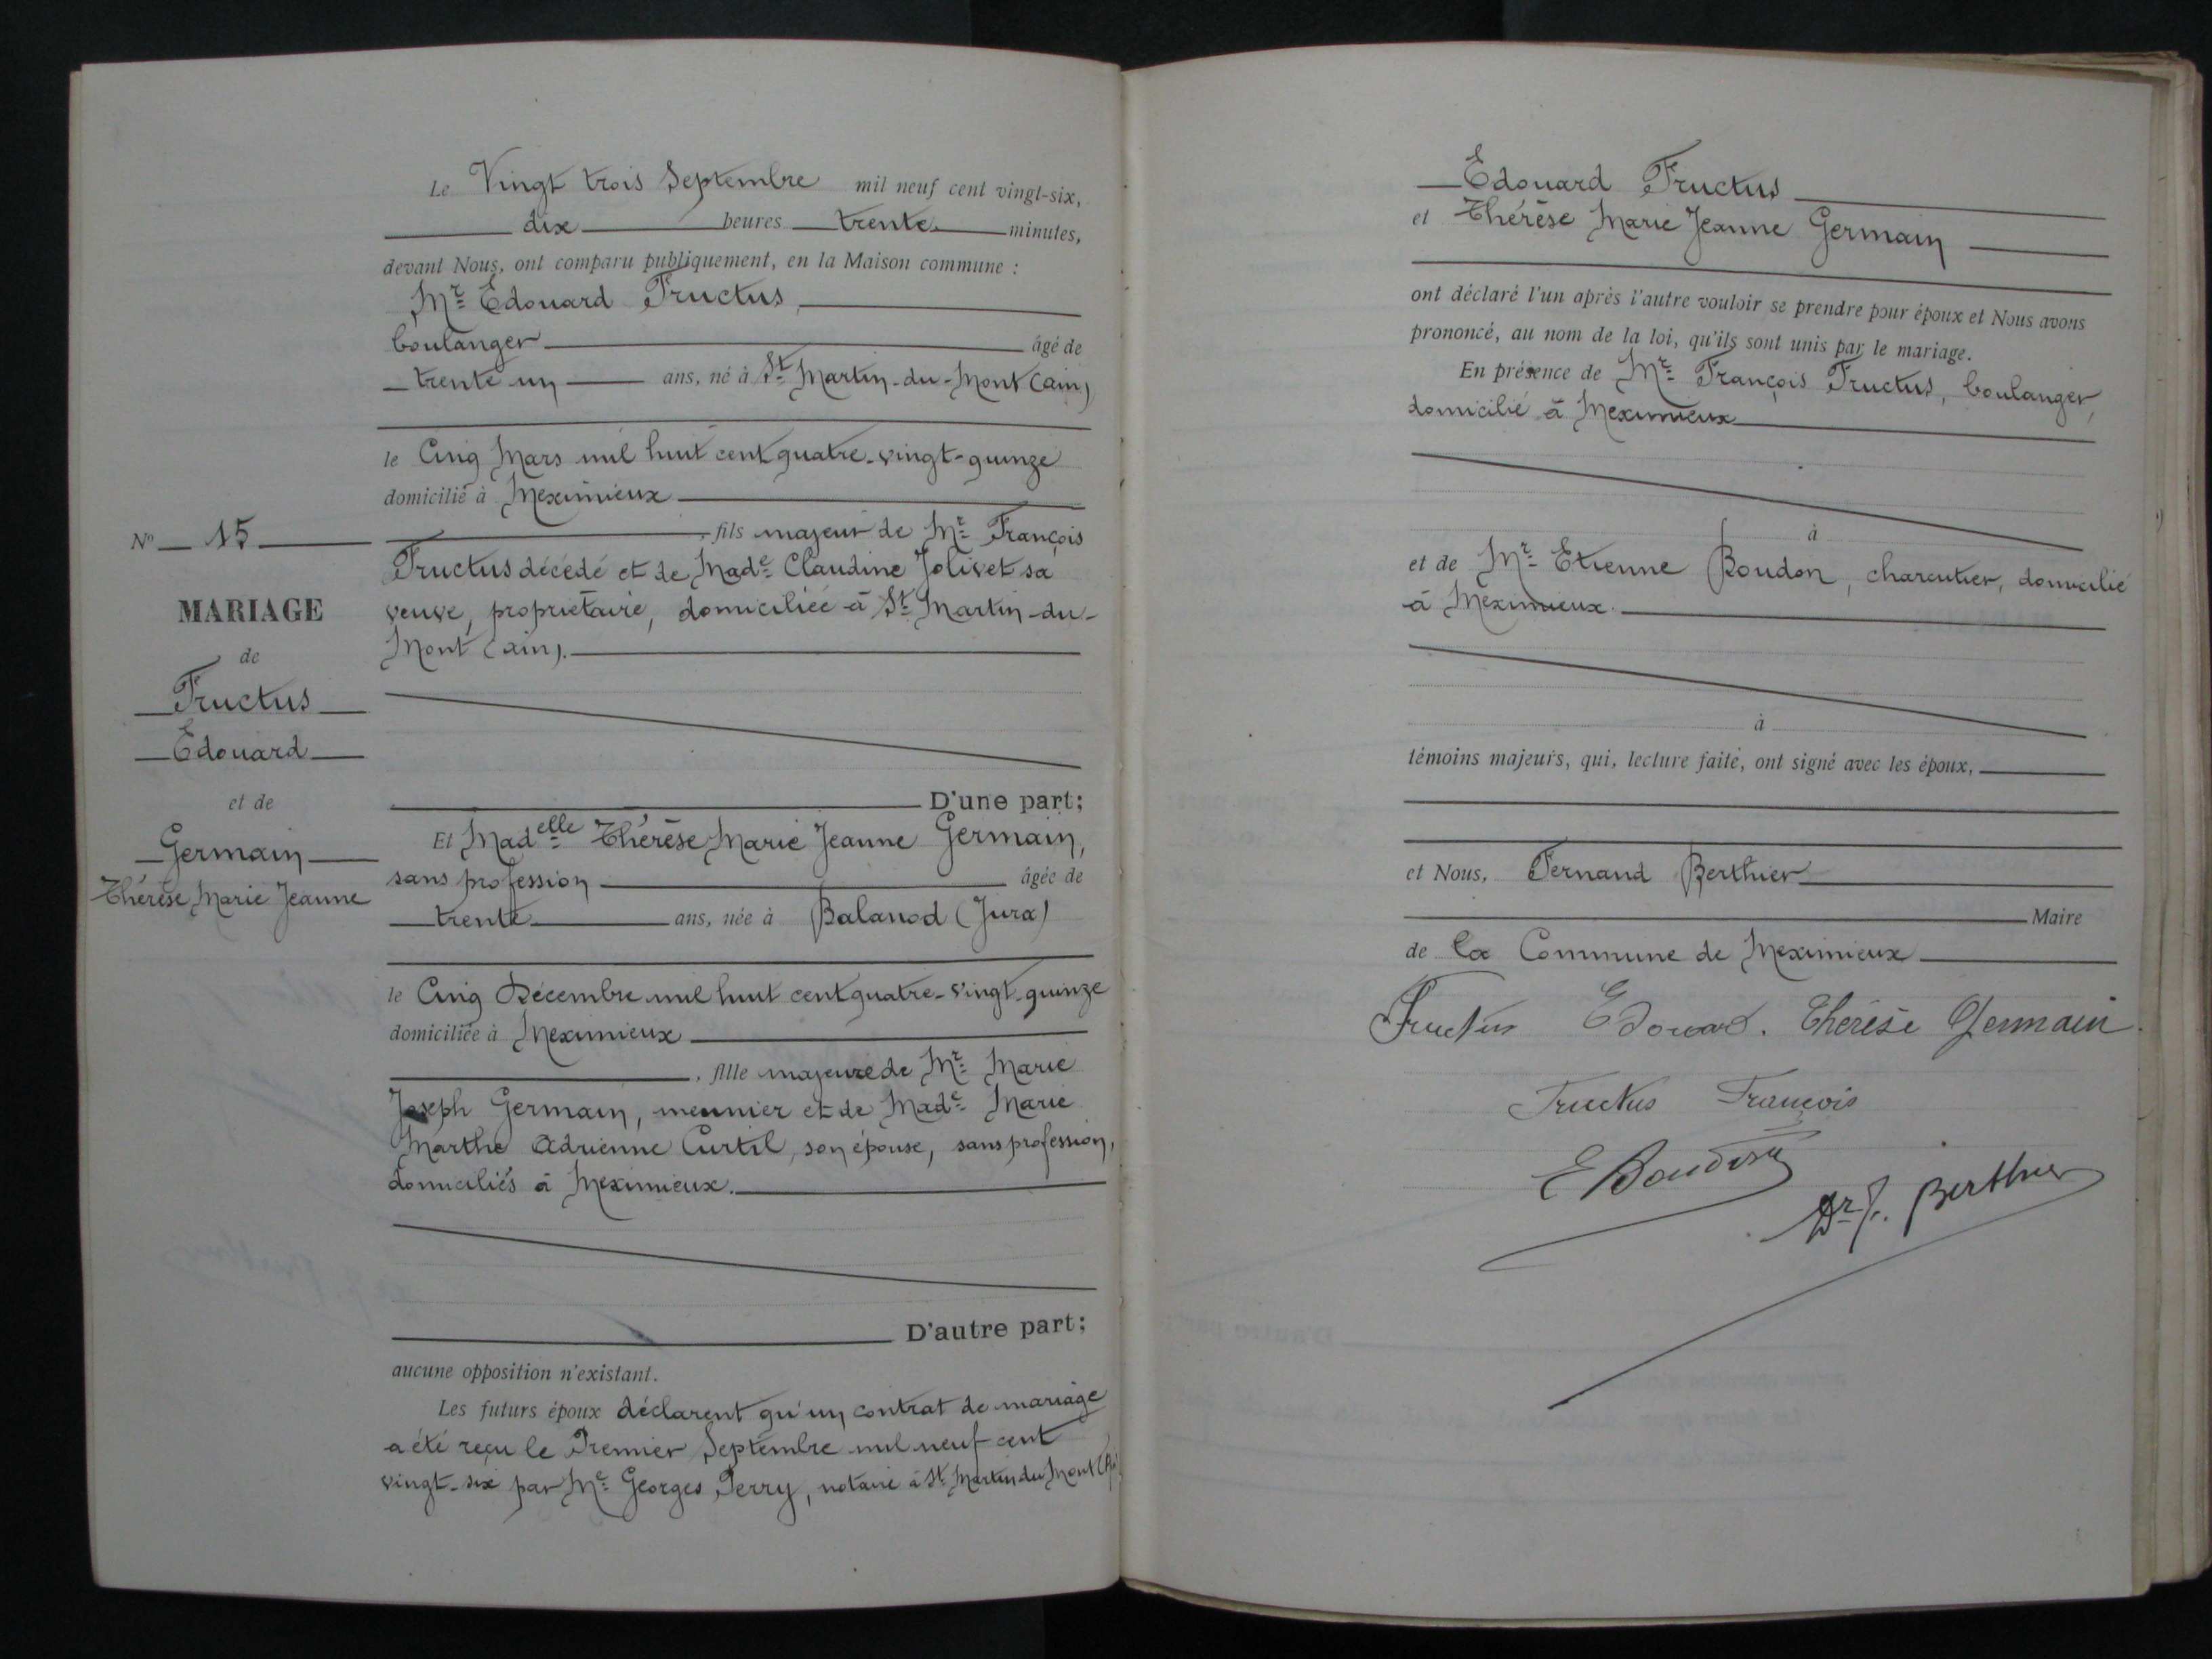 Le Vingt trois Septembre mil neuf cent vingt-six,
dix heures trente minutes,
devant Nous, ont comparu publiquement, en la Maison commune :
Mr Edouard Fructus,
boulanger âgé de
trente un ans, né à St Martin-du-Mont (Ain)
le Cinq Mars mil huit cent quatre-vingt-quinze
domicilié à Meximieux
, fils majeur de Mr François
Fructus décédé et de Made Claudine Jolivet sa
veuve, propriétaire, domiciliée à St Martin-du-
Mont (Ain).
D'une part;
Et Madelle Thérèse Marie Jeanne Germain,
sans profession âgée de
trente ans, née à Balanod (Jura)
le Cinq Décembre mil huit cent quatre-vingt-quinze
domiciliée à Meximieux
, fille majeure de Mr Marie
Joseph Germain, meunier et de Made Marie
Marthe Adrienne Curtil, son épouse, sans profession,
domiciliés à Meximieux.
D'autre part;
aucune opposition n'existant.
Les futurs époux déclarent qu'un contrat de mariage
a été reçu le Premier Septembre mil neuf cent
vingt-six par Me Georges Perry, notaire à St Martin du Mont
No 15
MARIAGE
de
Fructus
Edouard
et de
Germain
Thérèse Marie Jeanne
Edouard Fructus
et Thérèse Marie Jeanne Germain
ont déclaré l'un après l'autre vouloir se prendre pour époux et Nous avons
prononcé, au nom de la loi, qu'ils sont unis par le mariage.
En présence de Mr François Fructus, boulanger,
domicilié à Meximieux
à
et de Mr Etienne Boudon, charcutier, domicilié
à Meximieux.
à
témoins majeurs, qui, lecture faite, ont signé avec les époux,
et Nous, Fernand Berthier
Maire
de la Commune de Meximieux
Fructus Edouard. Thérèse Germain.
Fructus François
E Boudon
Dr F. Berthier